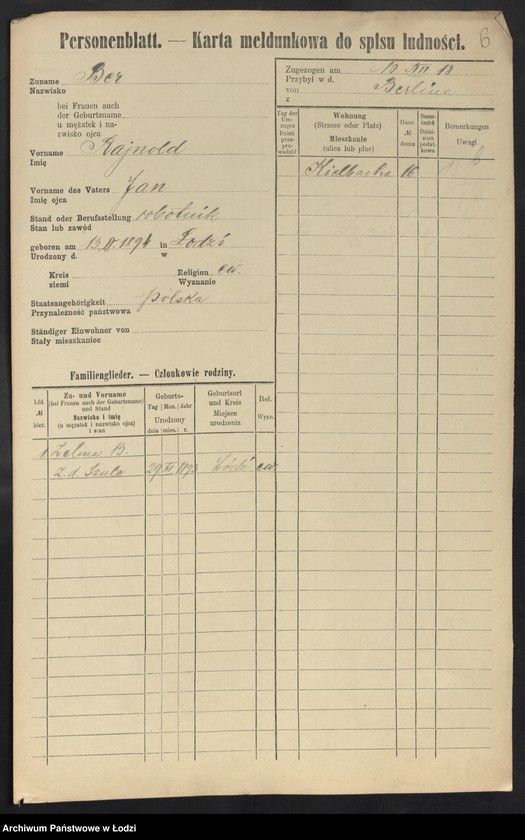 Personenblatt. — Karta meldunkowa do spisu ludności.
6
Zuname Ber
Nazwisko
bei Frauen auch
der Geburtsname
u mężatek i na-
zwisko ojca
Vorname Rajnold
Imię
Vorname des Vaters Jan
Imię ojca
Stand oder Berufsstellung robotnik
Stan lub zawód
geboren am 13 IV. 1894 in Łodzi
Urodzony d. w
Kreis Religion ew.
ziemi Wyznanie
Staatsangehörigkeit polska
Przynależność państwowa
Ständiger Einwohner von
Stały mieszkaniec
Zugezogen am 10 XII 18
Przybył w d.
von Berlina
z
Tag des Um-zuges Dzień prze-prowadzki
Wohnung (Strasse oder Platz) Mieszkanie (ulica lub plac)
Haus № domu
Steuer-bezirk Dzielnica podat-kowa
Bemerkungen Uwagi
Kielbacha 16
6
Familienglieder. — Członkowie rodziny.
Lfd. № bież.
Zu- und Vorname (bei Frauen auch der Geburtsname) und Stand Nazwisko i imię (u mężatek i nazwisko ojca) i stan
Geburts- Tag Mon. Jahr Urodzony dnia mies. r.
Geburtsort und Kreis Miejsce urodzenia
Rel. Wyzn.
1 Zelma B.
z. d. 29 XI 1893 Łódź ew.
Archiwum Państwowe w Łodzi